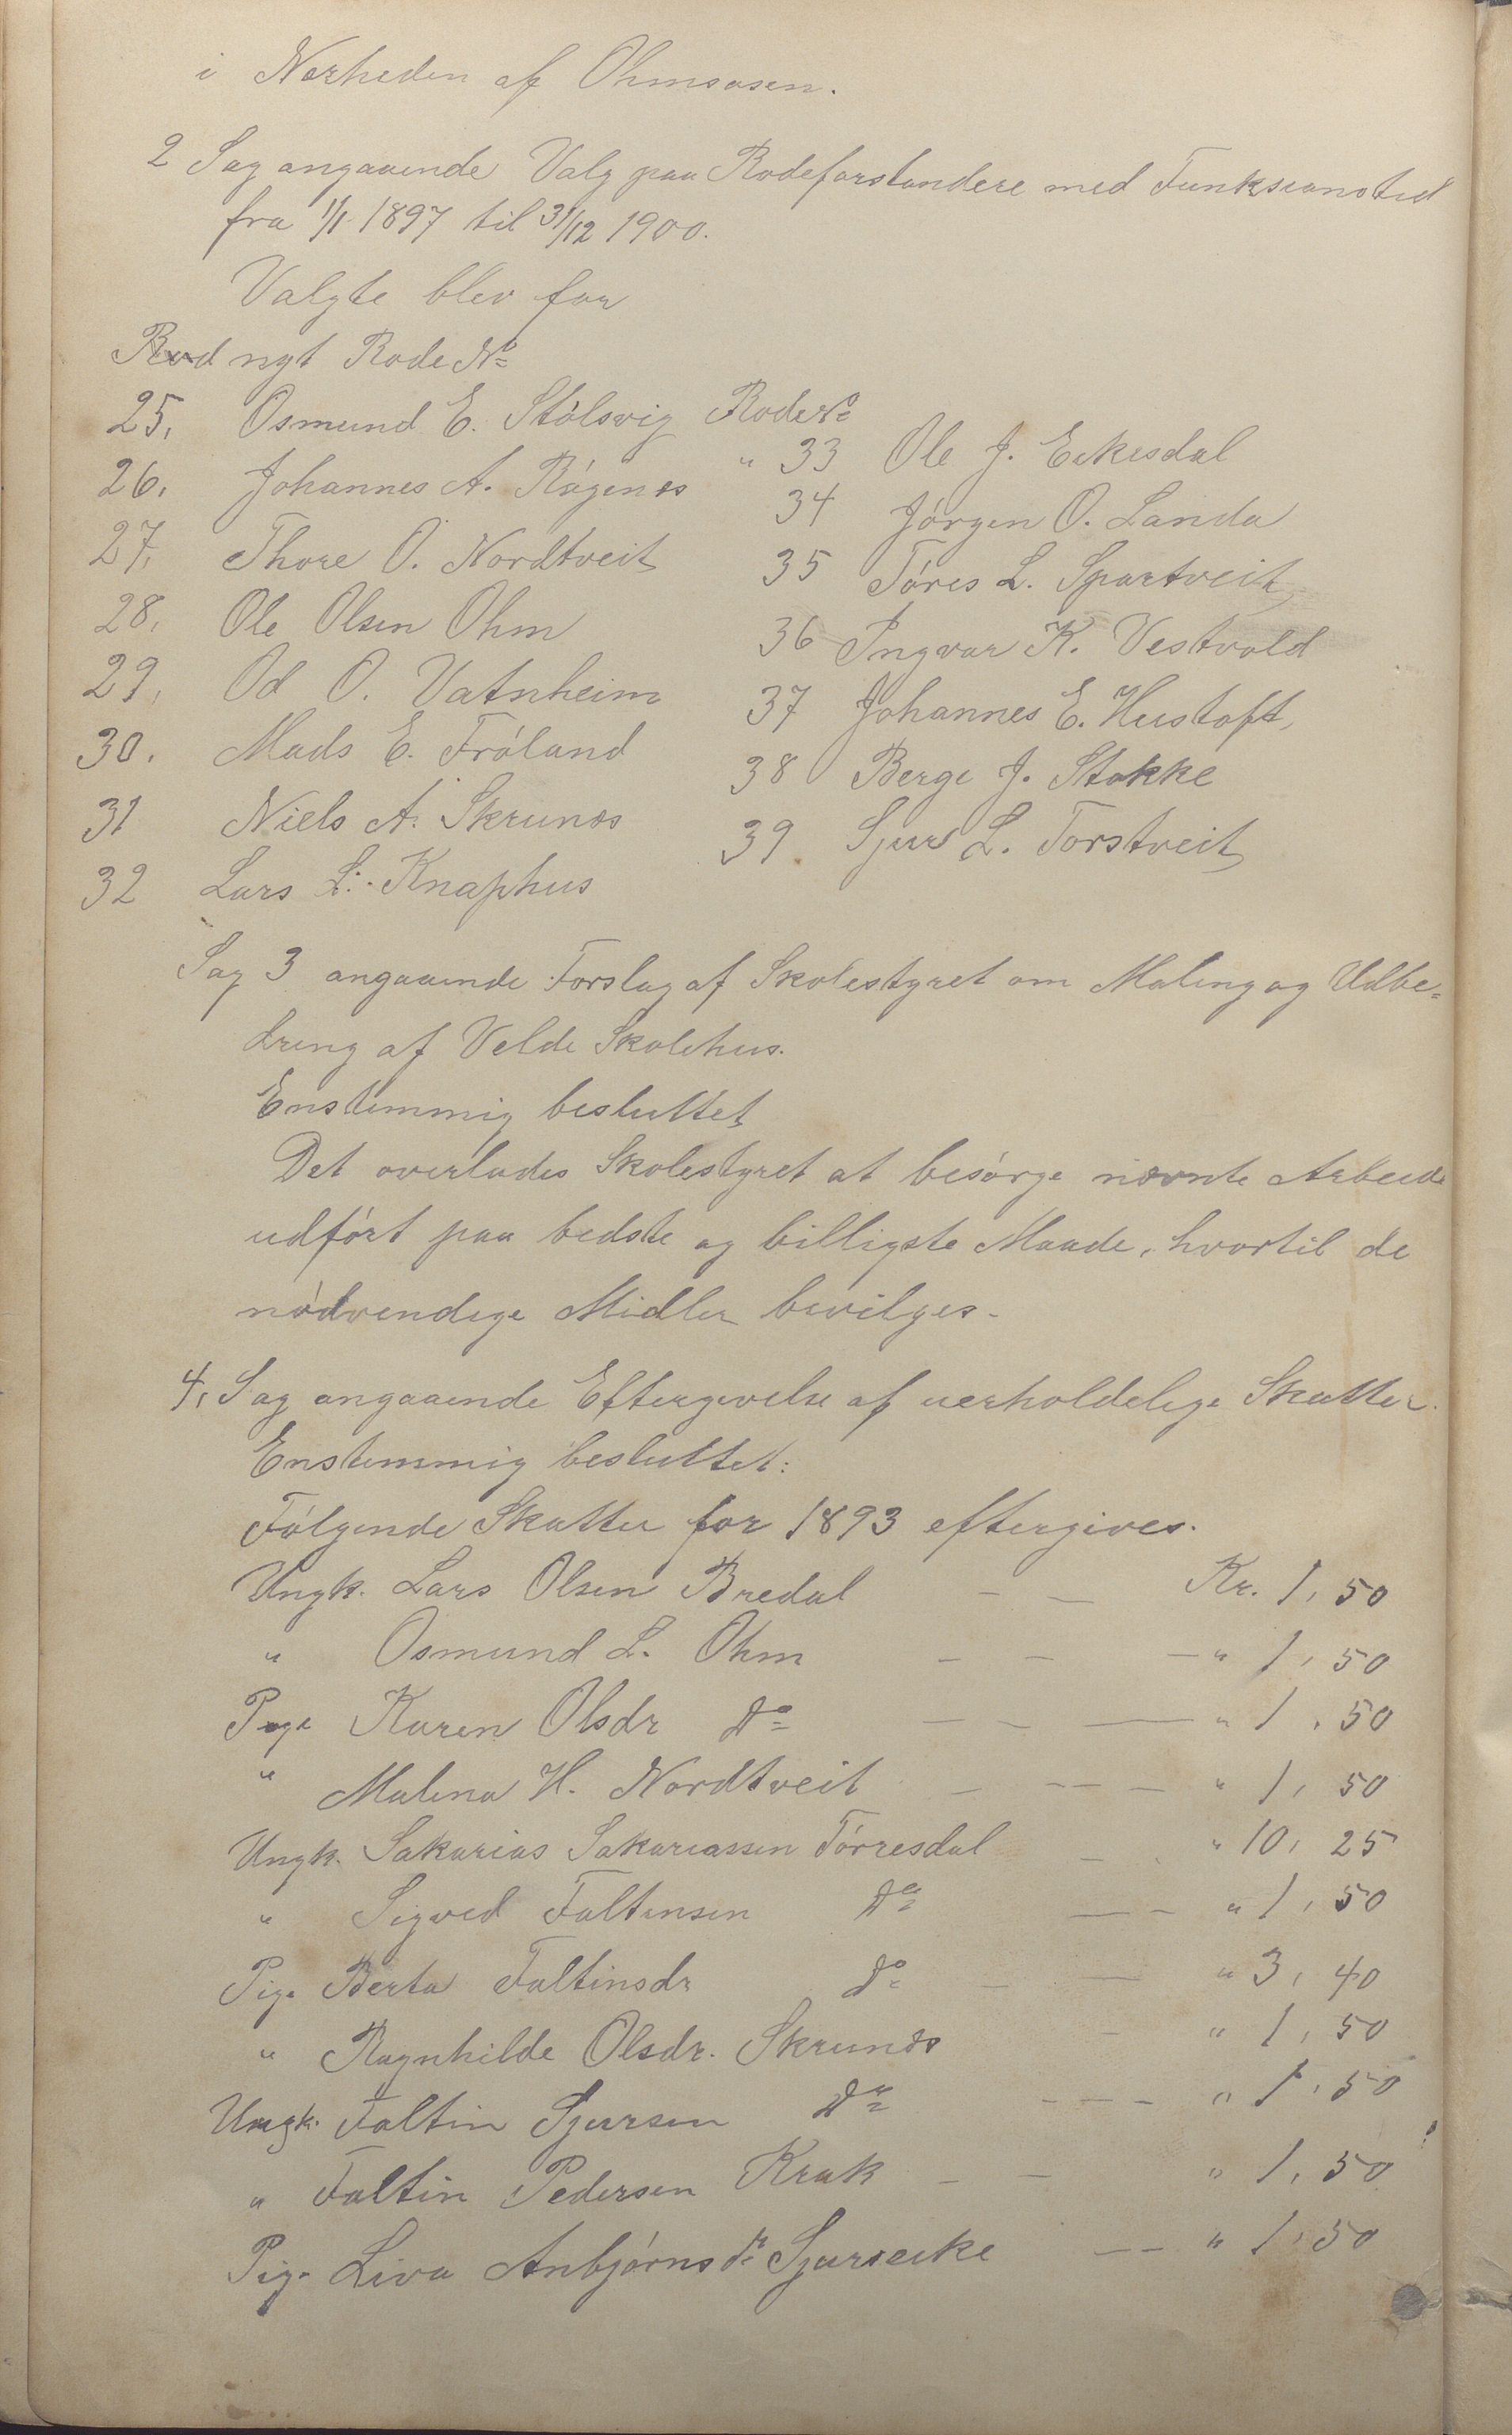 i Nærheden af Ohmsosen.
2 Sag angaaende Valg paa Rodeforstandere med Funksionstid
fra 1/1 1897 til 31/12 1900.
Valgte blev for
Rod nyt Rode No
25, Osmund E. Stölsvig
26, Johannes A. Rágenes
27, Thore O. Nordtveit
28, Ole Olsen Ohm
29, Od O. Vatnheim
30. Mads E. Fröland
31 Niels A. Skrunæs
32 Lars L. Knaphus
Rode No
" 33 Ole J. Eikesdal
34 Jörgen O. Landa
35 Töres L. Spartveit
36 Ingvar K. Vestvold
37 Johannes E. Hustoft,
38 Berge J. Stakke
39 Sjur L. Torstveit
Sag 3 angaaende Forslag af Skolestyret om Maling og Udbe=
dring af Velde Skolehus.
Enstemmig besluttet
Det overlades Skolestyret at besörge nævnte Arbeide
udfört paa bedste og billigste Maade, hvortil de
nödvendige Midler bevilges.
4, Sag angaaende Eftergivelse af uerholdelige Skatter.
Enstemmig besluttet:
Fölgende Skatter for 1893 eftergives.
Ungk. Lars Olsen Bredal — — Kr. 1, 50
" Osmund L. Ohm — — — " 1, 50
Pige Karen Olsdr Do — — — " 1, 50
" Malena H. Nordtveit — — — — " 1, 50
Ungk. Sakarias Sakariassen Törresdal — " 10, 25
" Sigved Faltinsen Do — — " 1, 50
Pige Berta Faltinsdr do — — " 3, 40
" Ragnhilde Olsdr. Skrunæs — " 1, 50
Ungk. Faltin Sjursen Do — — — " 1, 50
" Faltin Pedersen Krak — — " 1, 50
Pige Liva Anbjörnsdr Sjurseike — — " 1, 50